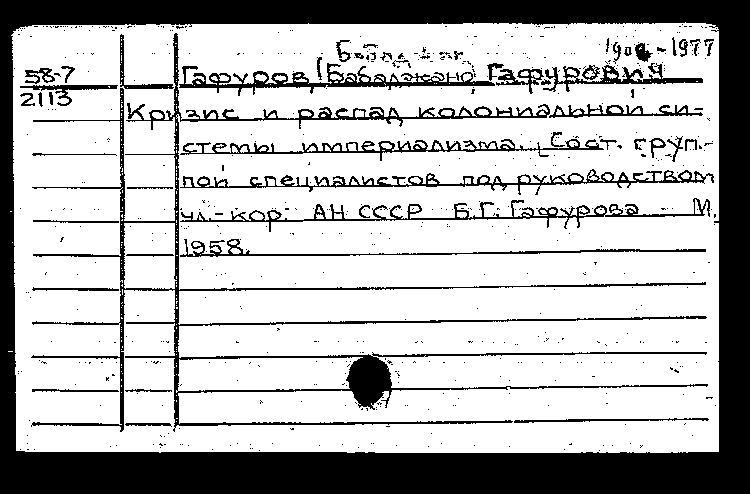 1908-1977
58-7
2113
Гафуров, Бабаджано Гафурович
Кризис и распад колониальной си-
стемы империализма. [Сост. груп-
пой специалистов под руководством
чл.-кор. АН СССР Б.Г. Гафурова. - М.
1958.